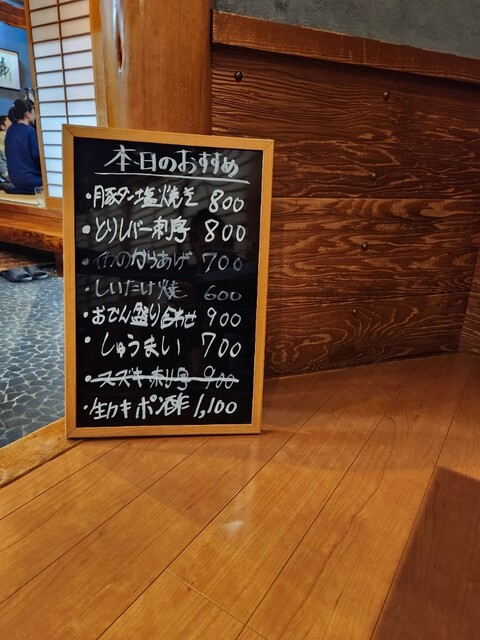 本日のおすすめ
・豚タン塩焼き 800
・とりレバー刺身 800
・イカのからあげ 700
・しいたけ焼 600
・おでん盛り合わせ 900
・しゅうまい 700
・スズキ刺身 900
・生カキポン酢 1,100